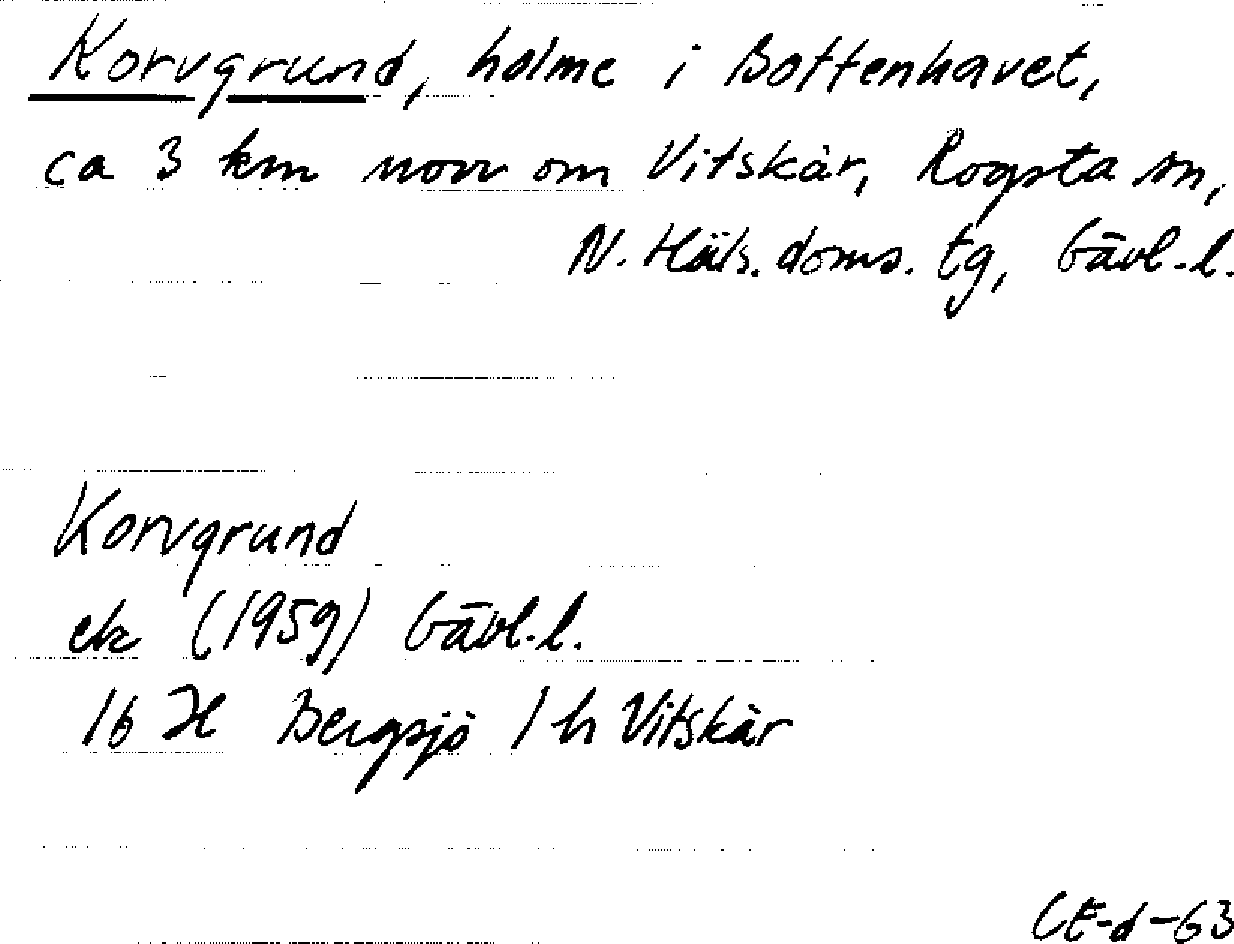 Korvgrund, holme i Bottenhavet,
ca 3 km norr om Vitskär, Rogsta sn,
N. Häls. doms. tg, Gävl.l.
Korvgrund
ek (1959) Gävl.l.
16 H Bergsjö 1 h Vitskär
CE-d-63